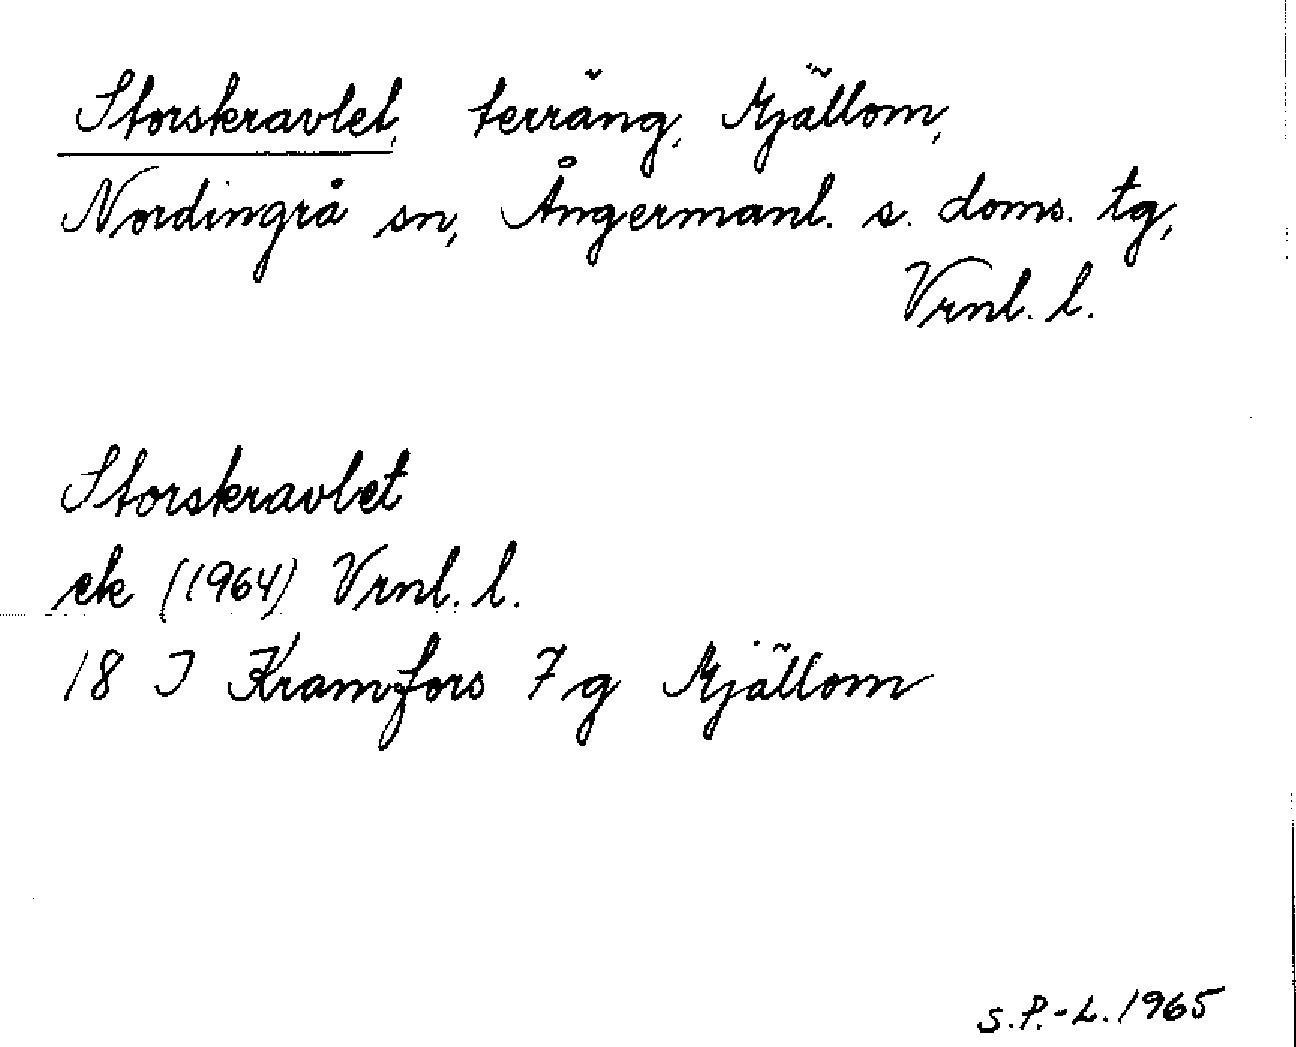 Storskravlet, terräng, Mjällom,
Nordingrå sn, Ångermanl. s. doms. tg,
Vrnl. l.
Storskravlet
ek (1964) Vrnl. l.
18 J Kramfors 7 g Mjällom
S.P.-L. 1965